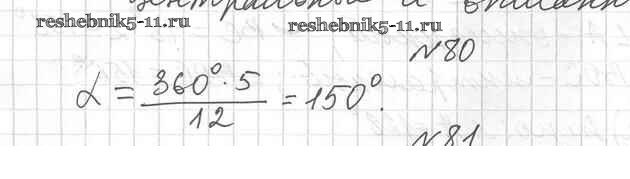 центральный и вписанн
reshebnik5-11.ru reshebnik5-11.ru
№80
α = 360°·5 / 12 = 150°.
№81